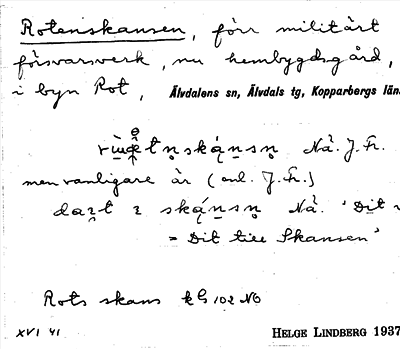 Rotenskansen, förr militärt
försvarsverk, nu hembygdsgård,
i byn Rot, Älvdalens sn, Älvdals tg, Kopparbergs län.
Nå. J. Fr.
men vanligare är (enl. J. Fr.)
Nå. 'Dit
= Dit till Skansen'
Rots skans kG 102 NO
XVI 41 HELGE LINDBERG 1937